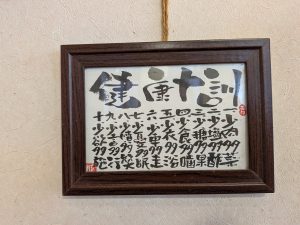 健康十訓
一少肉多菜
二少塩多酢
三少糖多果
四少食多噛
五少衣多浴
六少車多歩
七少煩多眠
八少憤多笑
九少言多行
十少欲多施